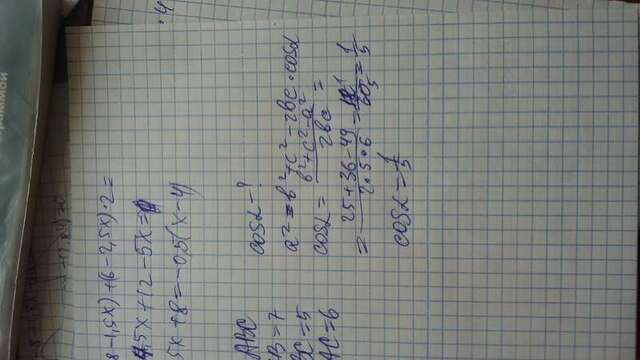 8-1,5x)+(6-2,5x)·2=
,5x+12-5x=
5x+8=-0,5(x-4)
ABC
B=7
BC=5
AC=6
cosα-?
a²=b²+c²-2bc·cosα
cosα=(b²+c²-a²)/(2bc)=
=(25+36-49)/(2·5·6)=12/60=1/5
cosα=1/5